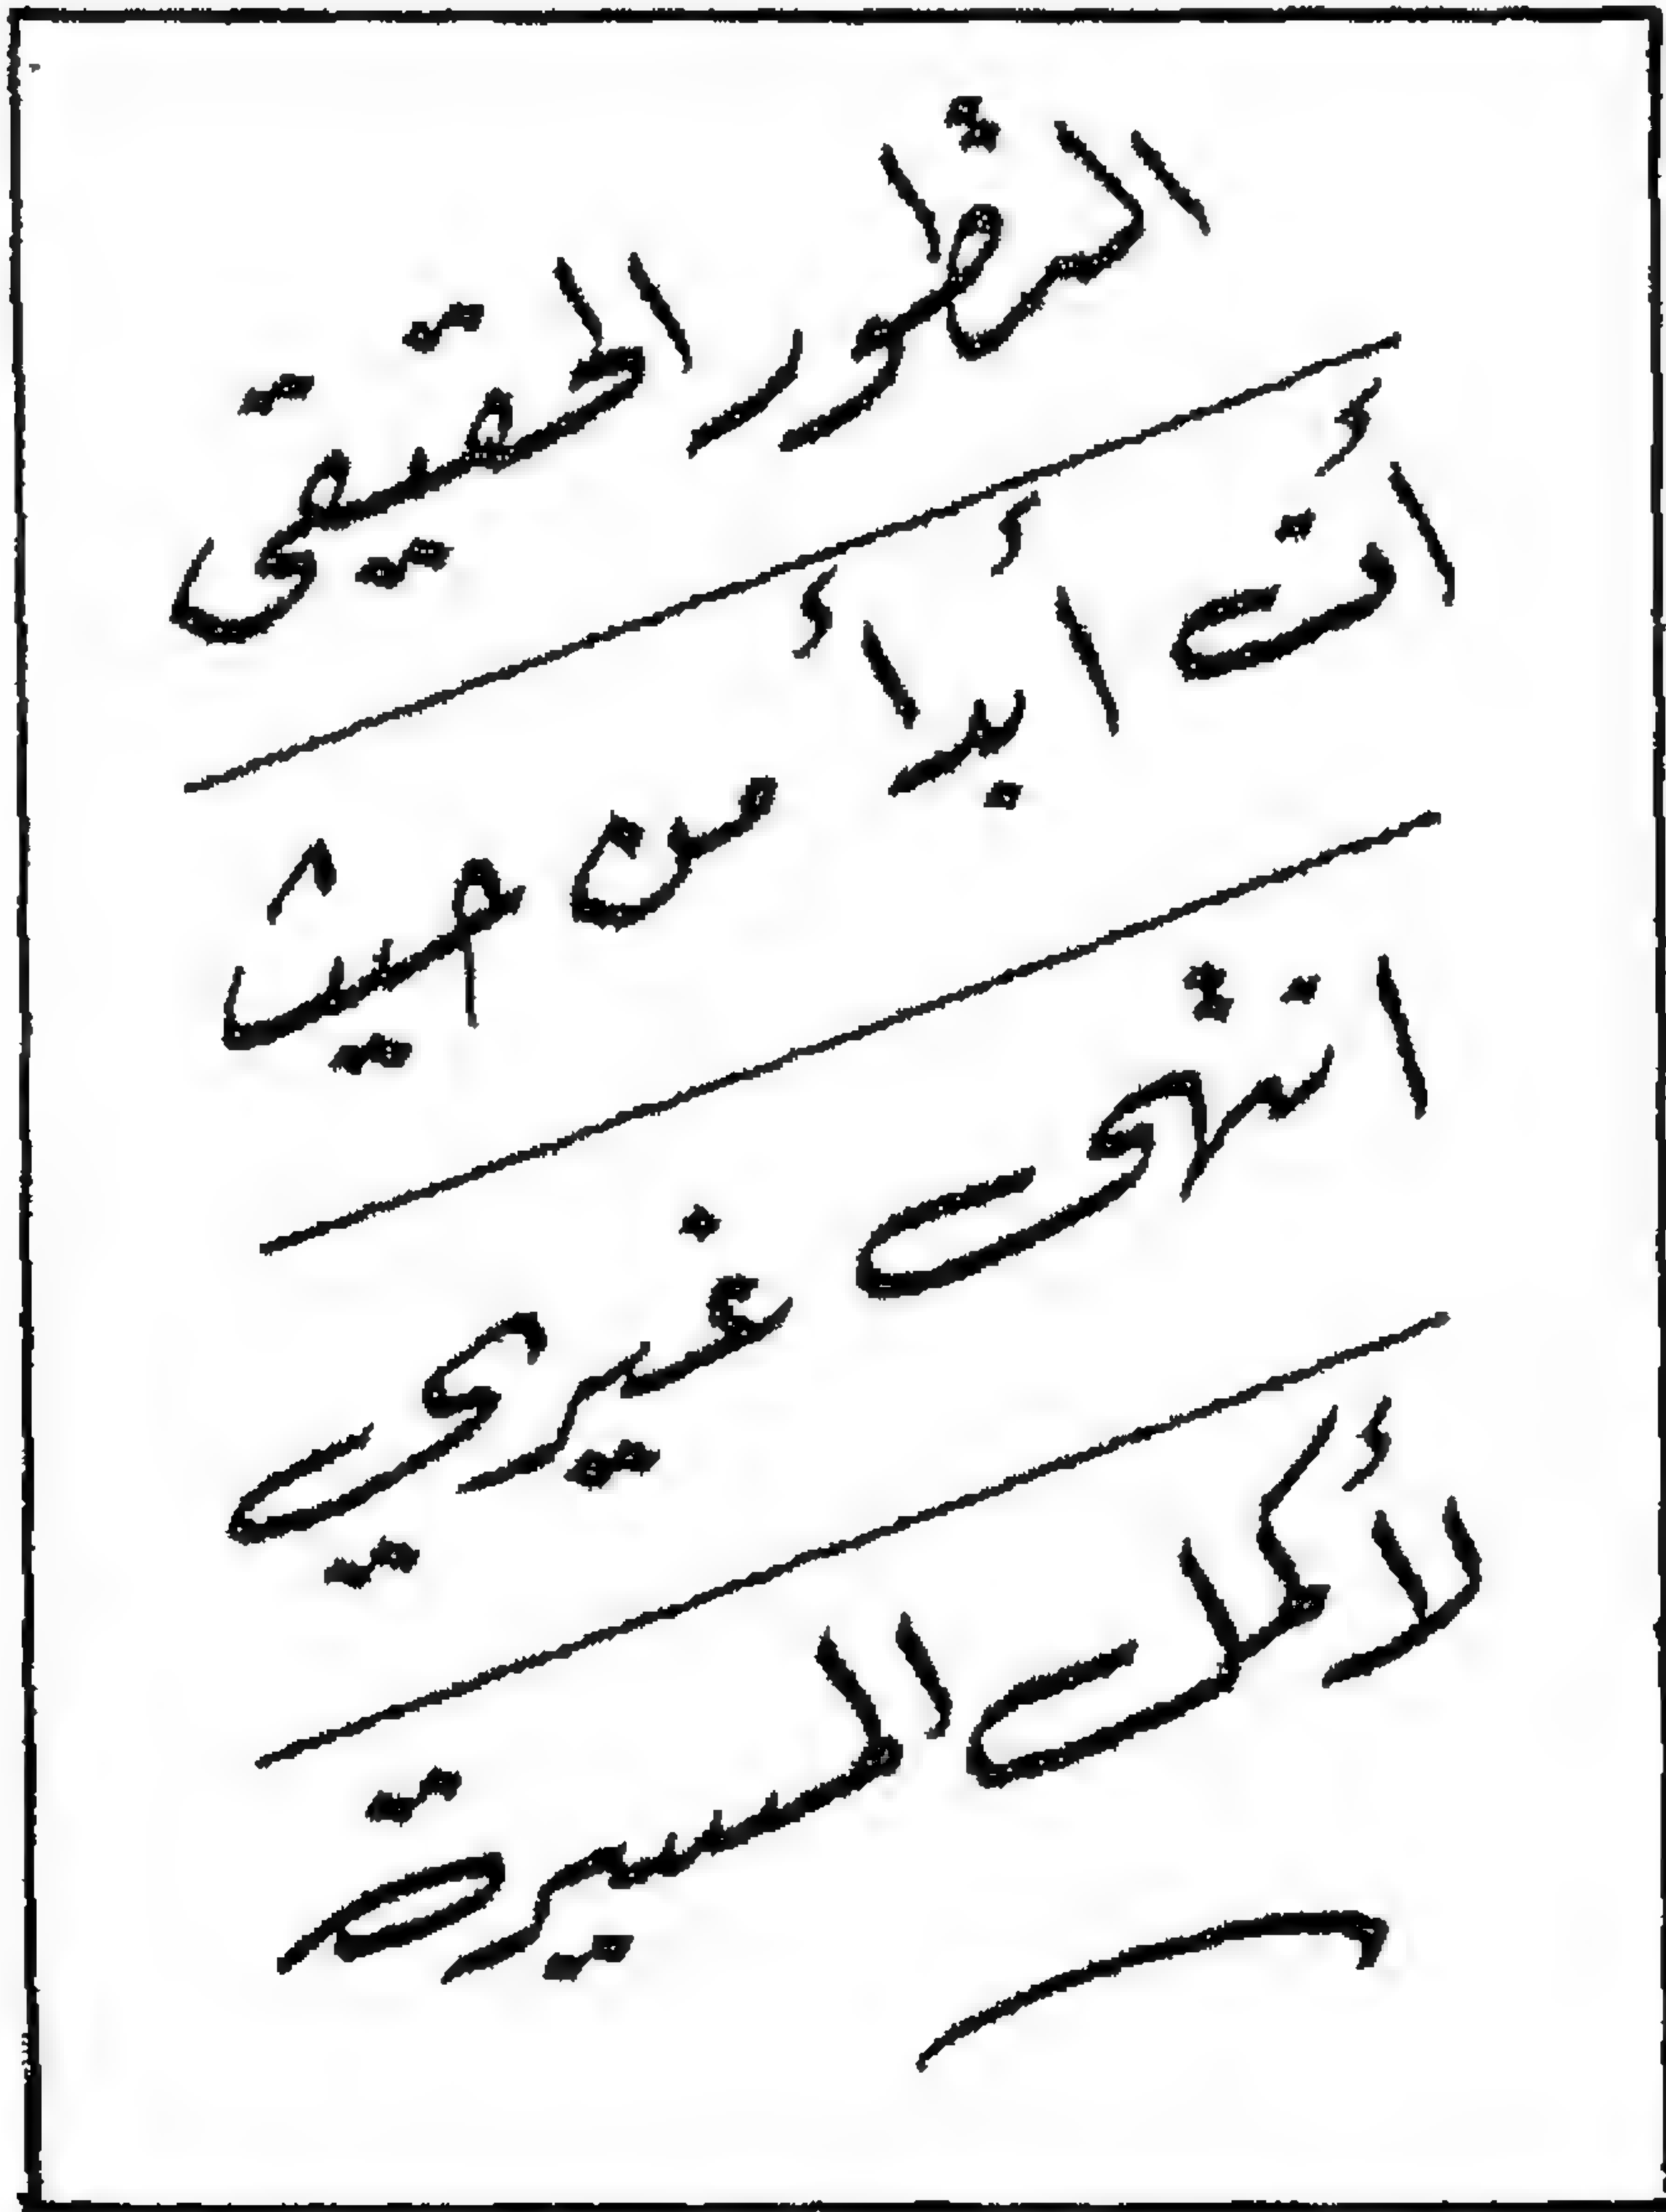 التطور الحقيقى
أن أبدأ من حيث
انتهى غيري
لأكمل المسيرة